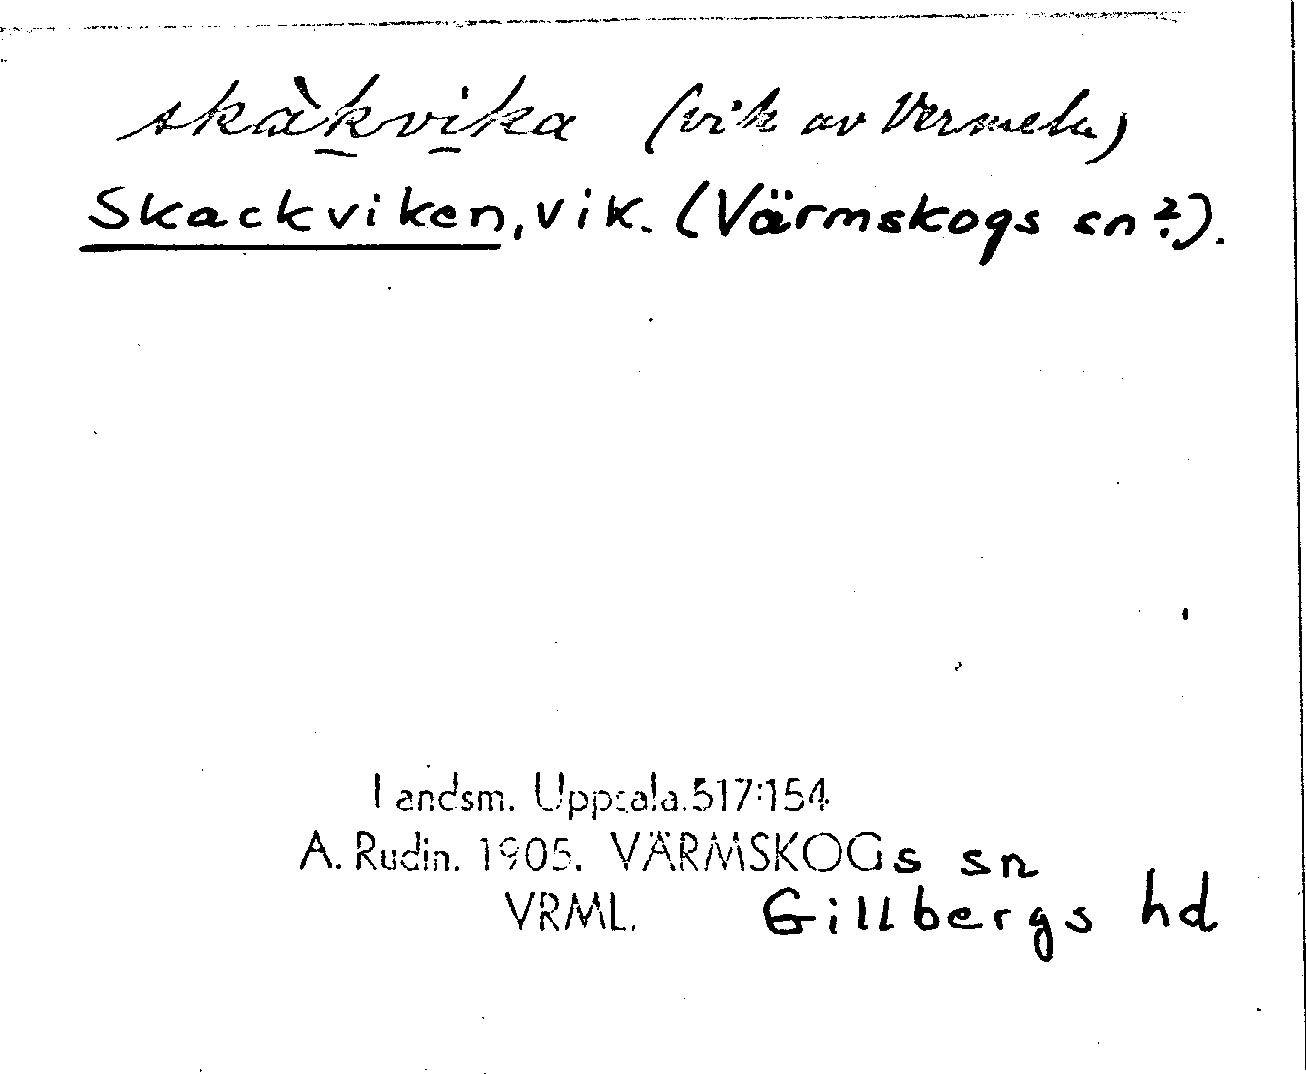 skàkvika (vik av Vermeln)
Skackviken, vik. (Värmskogs sn?).
Landsm. Uppsala.517:154
A. Rudin. 1905. VÄRMSKOGs sn
VRML. Gillbergs hd